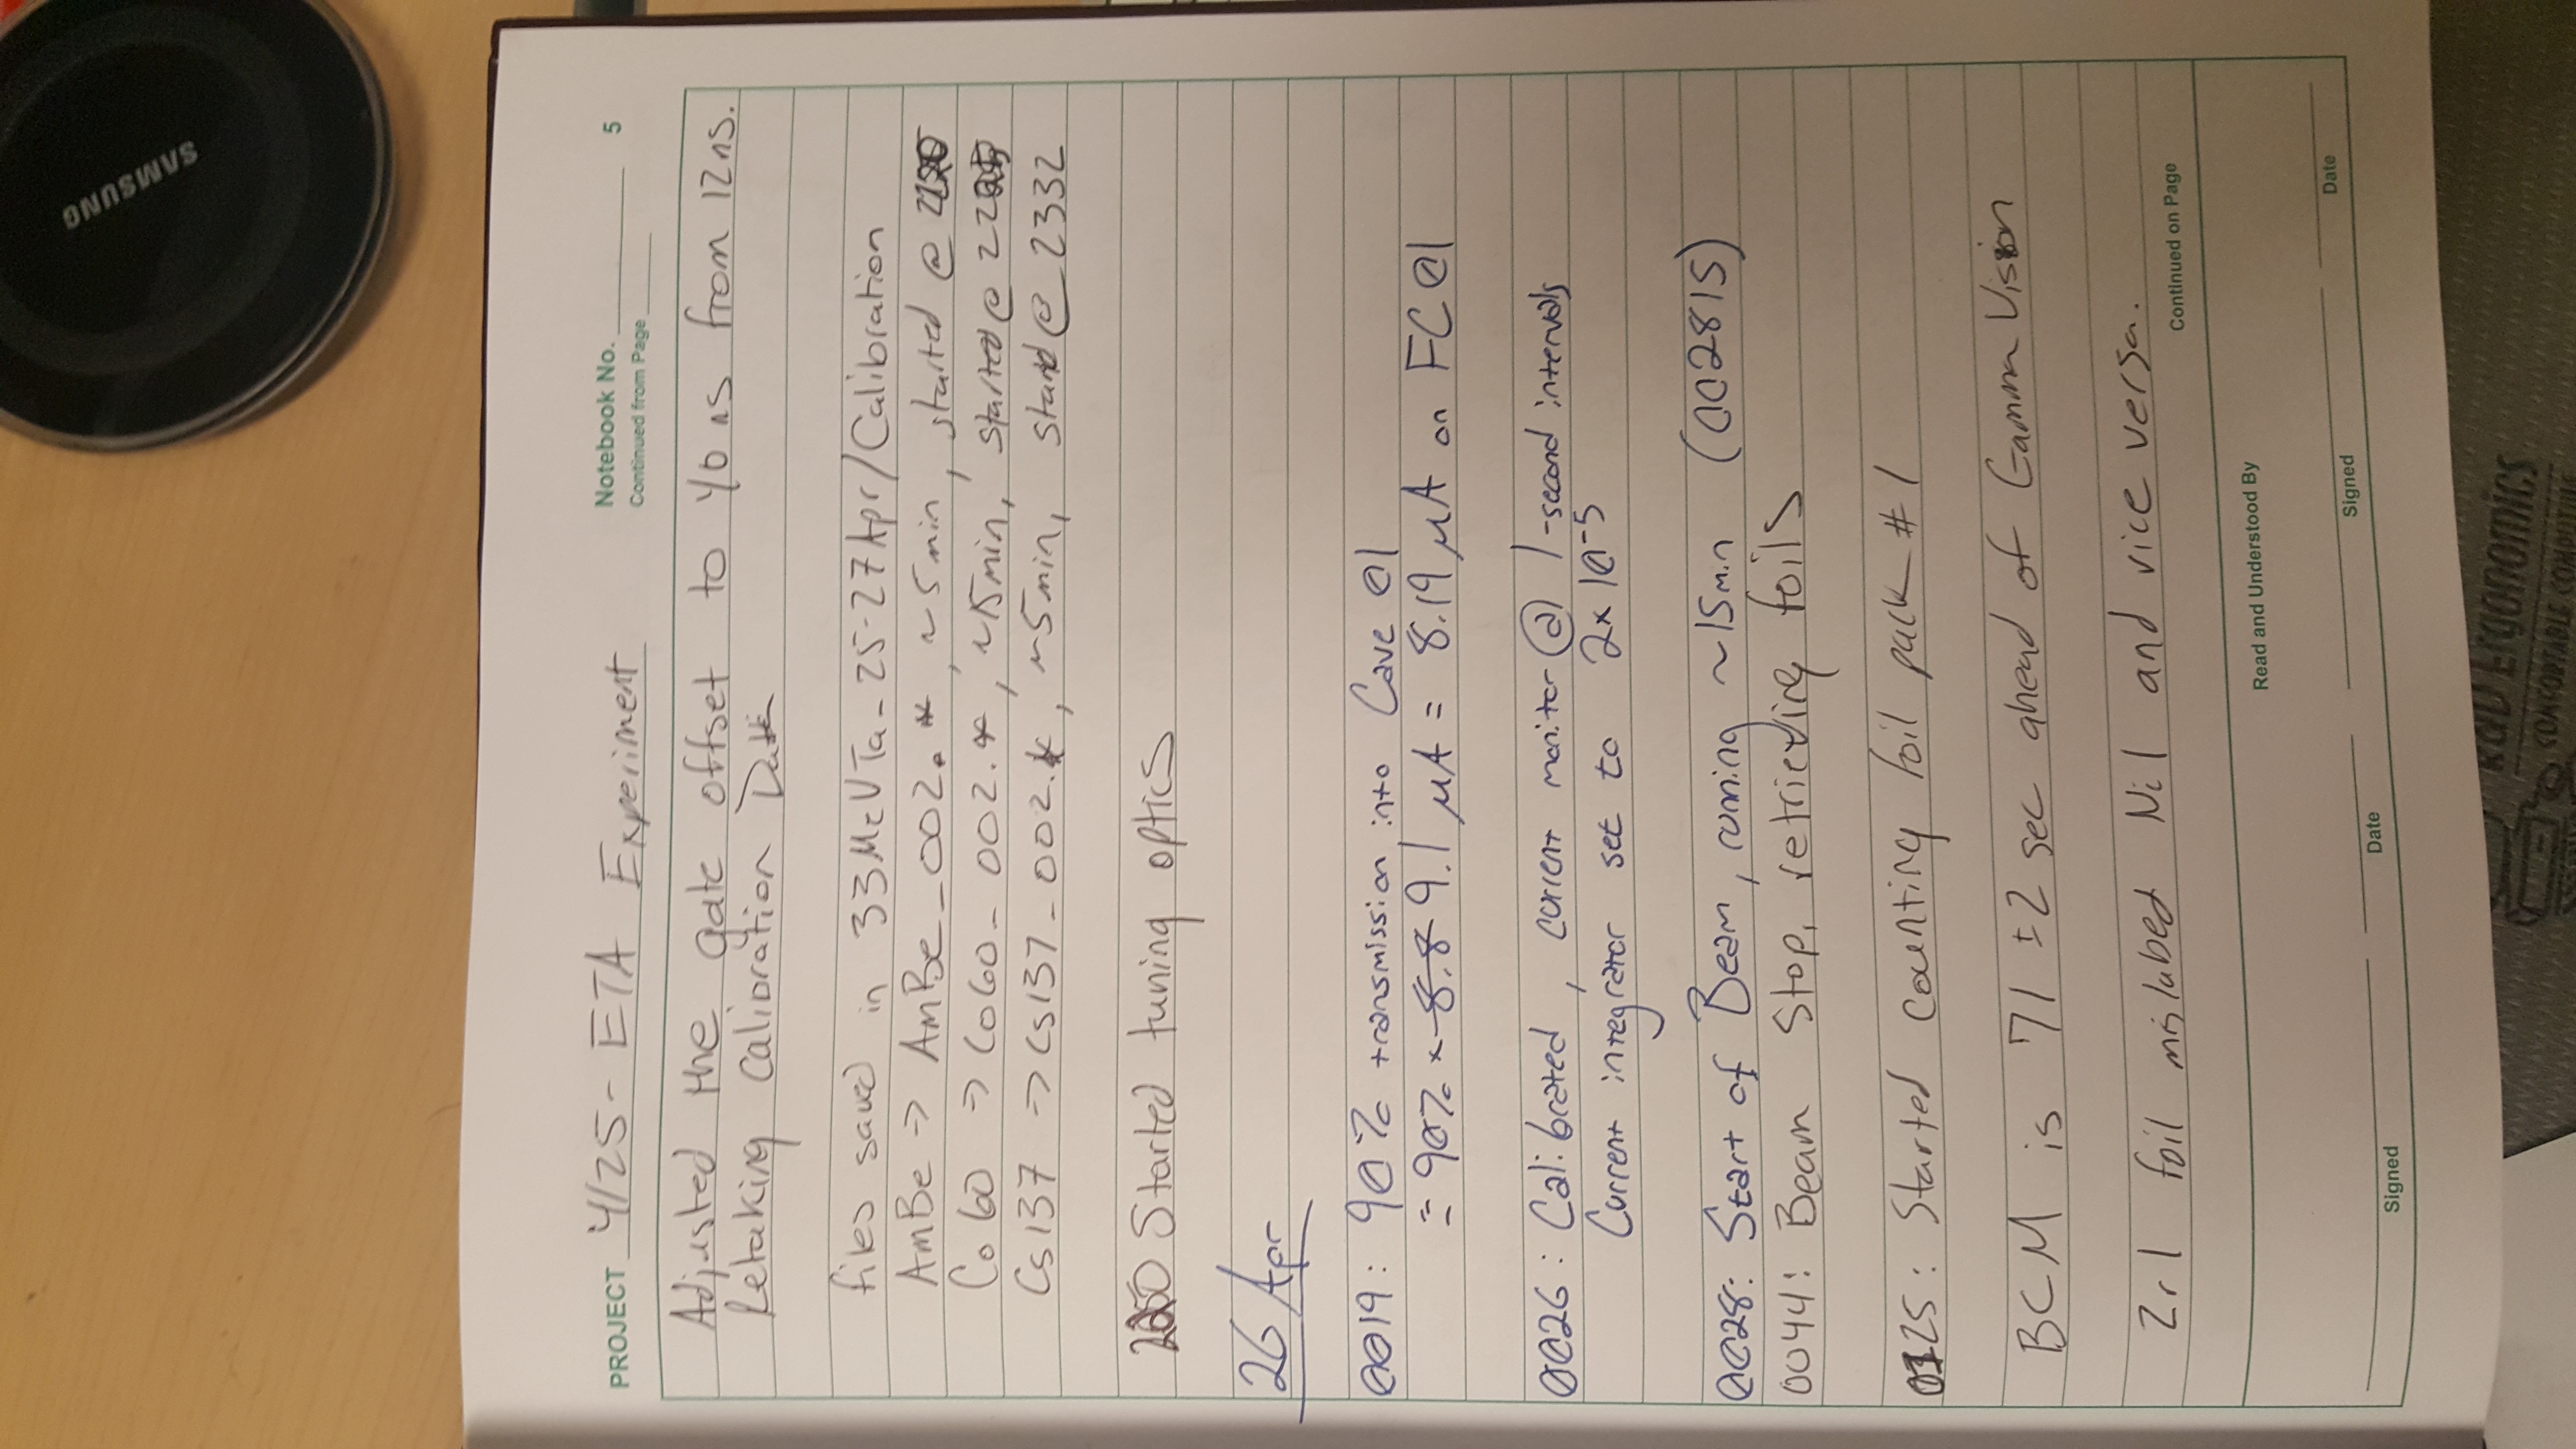 SAMSUNG
PROJECT 4/25 - ETA Experiment
Notebook No. 5
Continued from Page
Adjusted the gate offset to 40 ns from 12 ns.
Retaking Calibration Data
files saved in 33MeVTa_25-27Apr/Calibration
AmBe -> AmBe_002.*, ~5min, started @
Co60 -> Co60_002.*, ~15min, started @
Cs137 -> Cs137_002.*, ~5min, started @ 2332
Started tuning optics
26 Apr
0019: 90% transmission into Cave 01
= 90% × 8.8 9.1 μA = 8.19 μA on FC01
0026: Calibrated, current monitor @ 1-second intervals
Current integrator set to 2×10⁻⁵
0028: Start of Beam, running ~15min (002815)
0044: Beam Stop, retrieving foils
0125: Started counting foil pack #1
BCM is 71 ±2 sec ahead of Gamma Vision
Zr1 foil mislabed Ni1 and vice versa.
Continued on Page
Read and Understood By
Signed Date Signed Date
R&D Ergonomics
COMFORTABLE COMPUTING